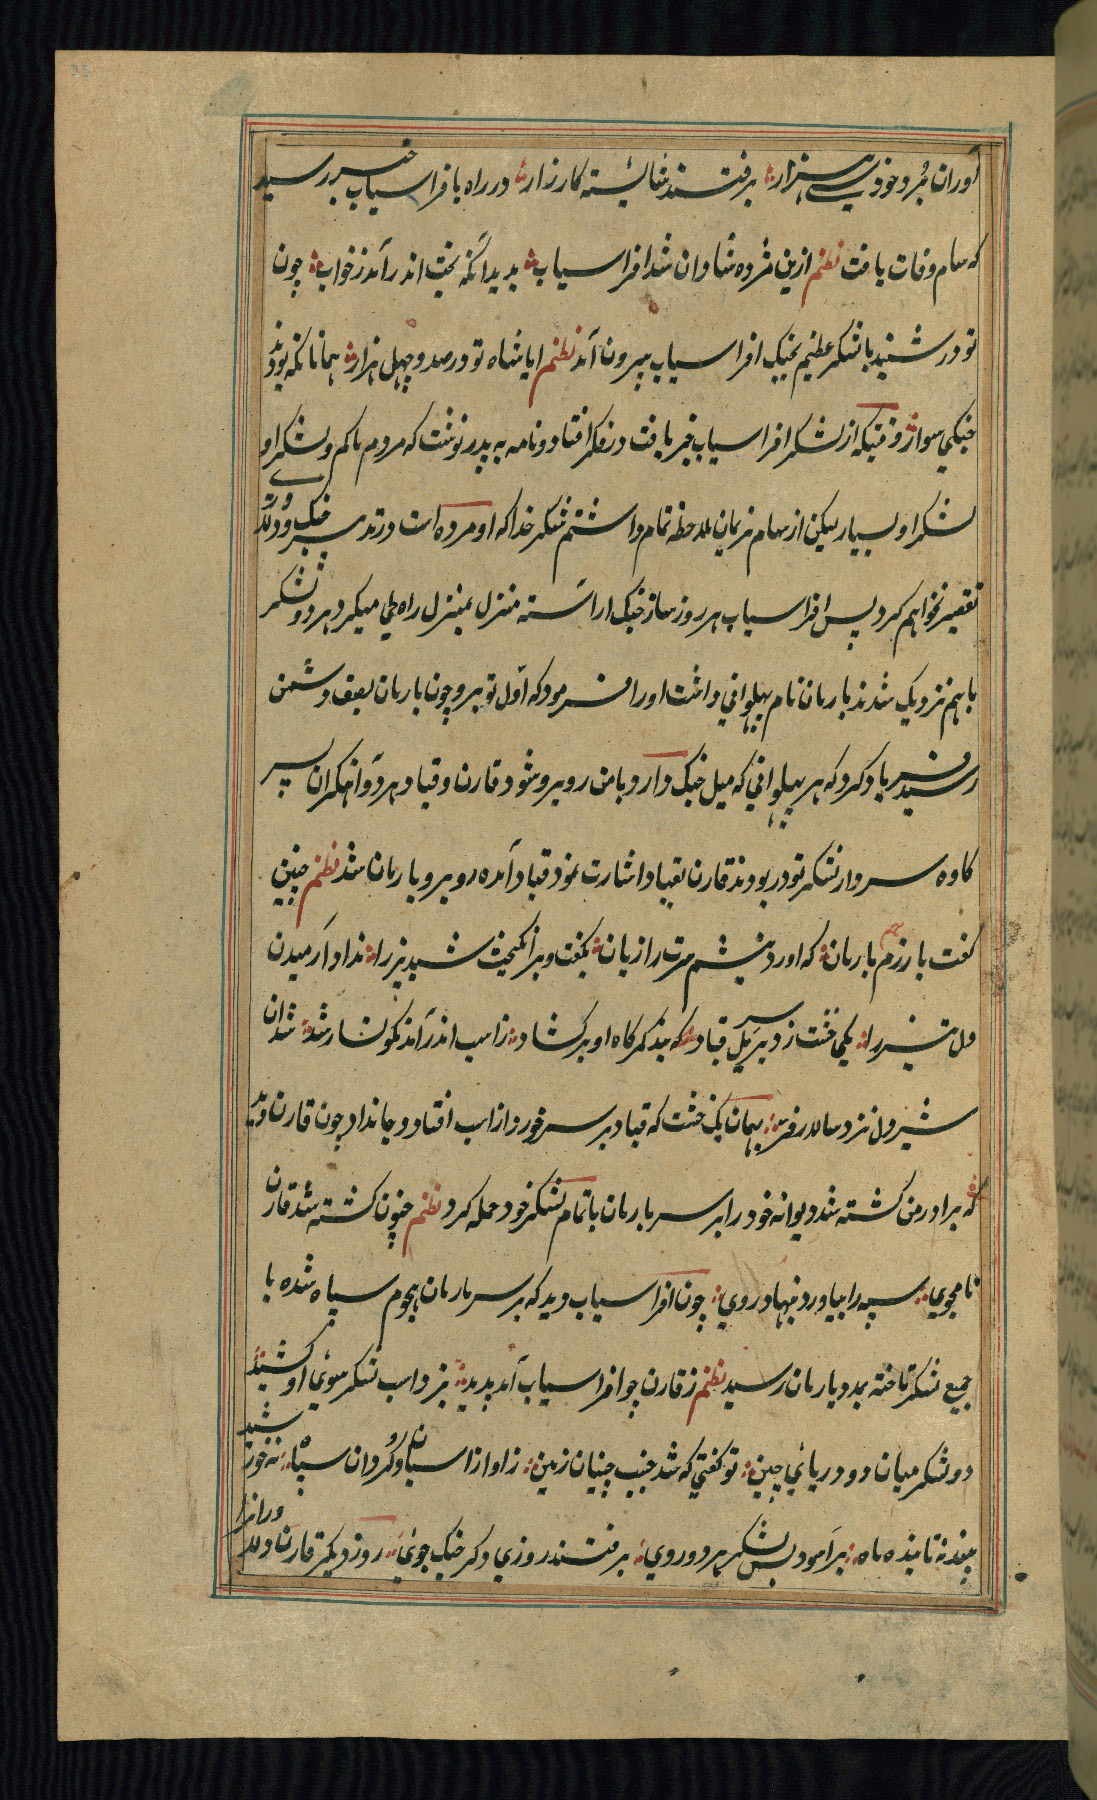 آوران مرد خود سی هزار برفتند شائسته کارزار در راه بافراسیاب خبر رسید
که سام وفات یافت نظم ازین مژده شادان شد افراسیاب بدید آنکه بخت اندر آمد ز خواب چون
نودر شنید بالشکر عظیم بجنگ افراسیاب بیرون آمد نظم ابا شاه نودر صد و چهل هزار همانا که بودند
جنگی سوار وقتیکه از لشکر افراسیاب خبر یافت در فکر افتاد و نامه به پدر نوشت که مردم ما کم و لشکر او
لشکر او بسیار لیکن از سام نریمان ملاحظه تمام داشتم شکر خدا که او مرده است در تدبیر جنگ و دلاوری
تقصیر نخواهم کرد پس افراسیاب هر روز ساز جنگ آراسته منزل بمنزل راه طی میکرد هر دو لشکر
باهم نزدیک شدند بارمان نام پهلوانی داشت او را فرمود که اول تو برو چون بارمان بصف دشمن
رسید فریاد کرد که هر پهلوانی که میل جنگ دارد با من روبرو شود قارن و قباد هر دو آهنگران پسر
کاوه سردار لشکر نودر بودند قارن بقباد اشارت نمود قباد آمده روبرو بارمان شد نظم چنین
گفت با رزم بارمان که آورد پیشم سرت را زبان بگفت و برانگیخت شبدیز را نداد آرمیدن
دل تیز را یکی خشت زد بر سر یل قباد که بند کمرگاه او برگشاد ز اسب اندر آمد نگونسار شد شد آن
شیردل نزد سالار فر بهمان یک خشت که قباد بر سر خورد از اسب افتاد و جان داد چون قارن دید
که برادر من کشته شد دیوانه خود را بر سر بارمان باتمام لشکر خود حمله کرد نظم چو او کشته شد قارن
نامجوی سپه را بیاورد و بنهاد روی چون افراسیاب دید که بر سر بارمان هجوم سپاه شده با
جمیع لشکر تاخته بمدد بارمان رسید نظم ز قارن چو افراسیاب آن بدید بزد اسب لشکر سوی او کشید
دو لشکر میان دو دریای چین تو گفتی که شد جنب جنبان زمین ز آواز اسپان و گردان سپاه نه خورشید
پیدا نه تابنده ماه برآمود پس لشکر هر دو روی برفتند روزی دگر جنگ جوی روز دیگر قارن دلاور